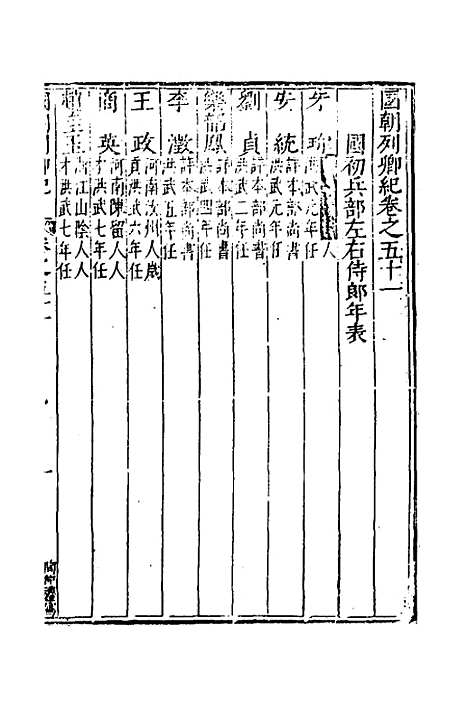 國朝列卿紀卷之五十一
國初兵部左右侍郎年表
洪武元年任
安統 詳本部尚書
洪武元年任
劉貞 詳本部尚書
洪武二年任
樂韶鳳 詳本部尚書
洪武四年任
李澂 詳本部尚書
洪武五年任
王政 河南汝州人歲
貢洪武六年任
商英 河南陳留人人
才洪武七年任
浙江山陰人人
才洪武七年任